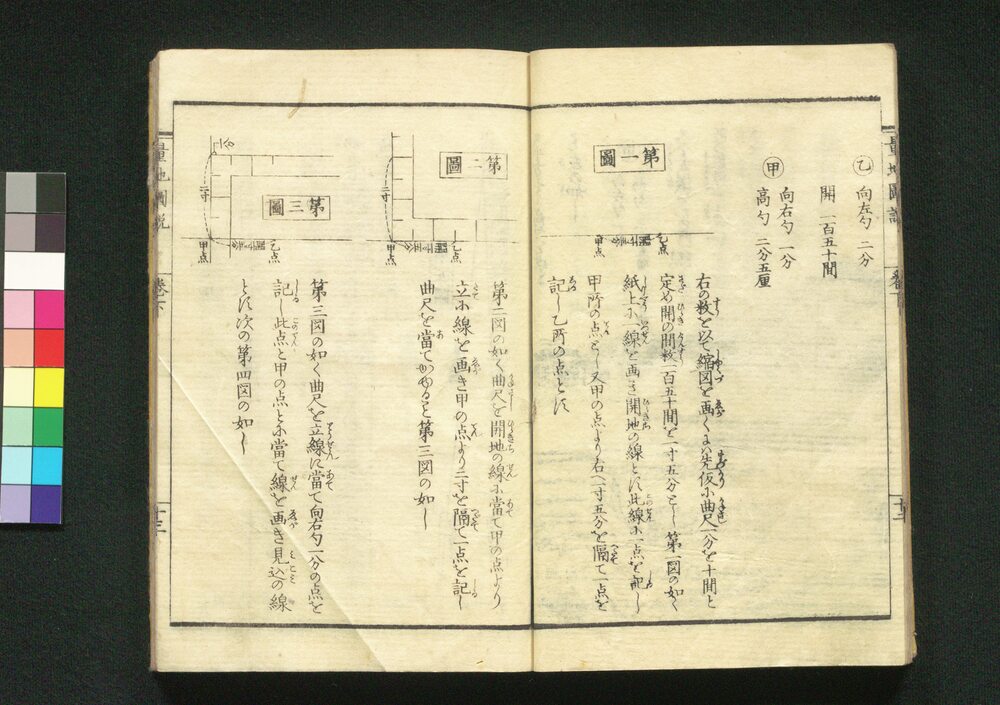 量地圖説
巻下
乙 向左勾 二分
開 一百五十間
甲 向右勾 一分
高勾 二分五厘
第一圖
乙点
甲点
右の数を以て縮図を画くには先仮に曲尺一分を十間と
定め開の間数一百五十間を一寸五分とし第一図の如く
紙上に一線を画き開地の線とす此線に一点を記し
甲所の点とし又甲の点より右へ一寸五分を隔て一点を
記し乙所の点とす
第二圖
二寸
甲点
乙点
第二図の如く曲尺を開地の線に當て甲の点より
立に線を画き甲の点より二寸を隔て一点を記し
曲尺を當てかゆること第三図の如し
第三圖
二寸
甲点
乙点
第三図の如く曲尺を立線に當て向右勾一分の点を
記し此点と甲の点とに當て線を画き見込の線
とす次の第四図の如し
量地圖説
巻下
十三